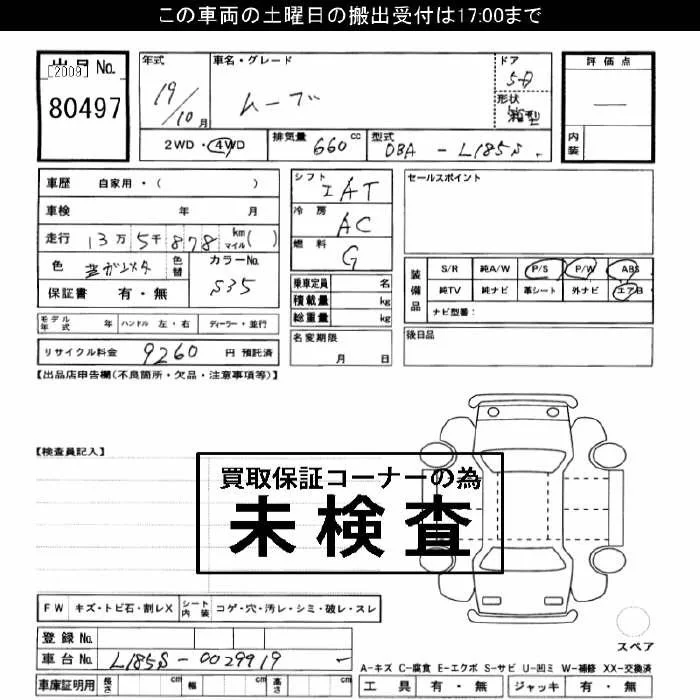 この車両の土曜日の搬出受付は17:00まで
出品 No.
[2009]
80497
年式
19/10月
車名・グレード
ムーブ
ドア
5D
形状
箱型
評価点
内装
2WD・4WD
排気量 660 cc
型式 DBA - L185S
車歴 自家用・( )
車検 年 月
走行 13万5千878 km マイル( )
色
色替
カラーNo.
S35
保証書 有・無
シフト
IAT
冷房
AC
燃料
G
乗車定員 名
積載量 kg
総重量 kg
セールスポイント
装備品
S/R 純A/W P/S P/W ABS
純TV 純ナビ 革シート 外ナビ エアB
ナビ型番:
モデル年式 年 ハンドル 左・右 ディーラー・並行
リサイクル料金 9260 円 預託済
名変期限
月 日
後日品
【出品店申告欄(不良箇所・欠品・注意事項等)】
【検査員記入】
買取保証コーナーの為
未検査
FW キズ・トビ石・割レX シート内装 コゲ・穴・汚レ・シミ・破レ・スレ
スペア
登録 No.
車台 No. L185S-0029919
A-キズ C-腐食 E-エクボ S-サビ U-凹ミ W-補修 XX-交換済
車庫証明用 長さ cm 幅 cm 高さ cm
工具 有・無 ジャッキ 有・無